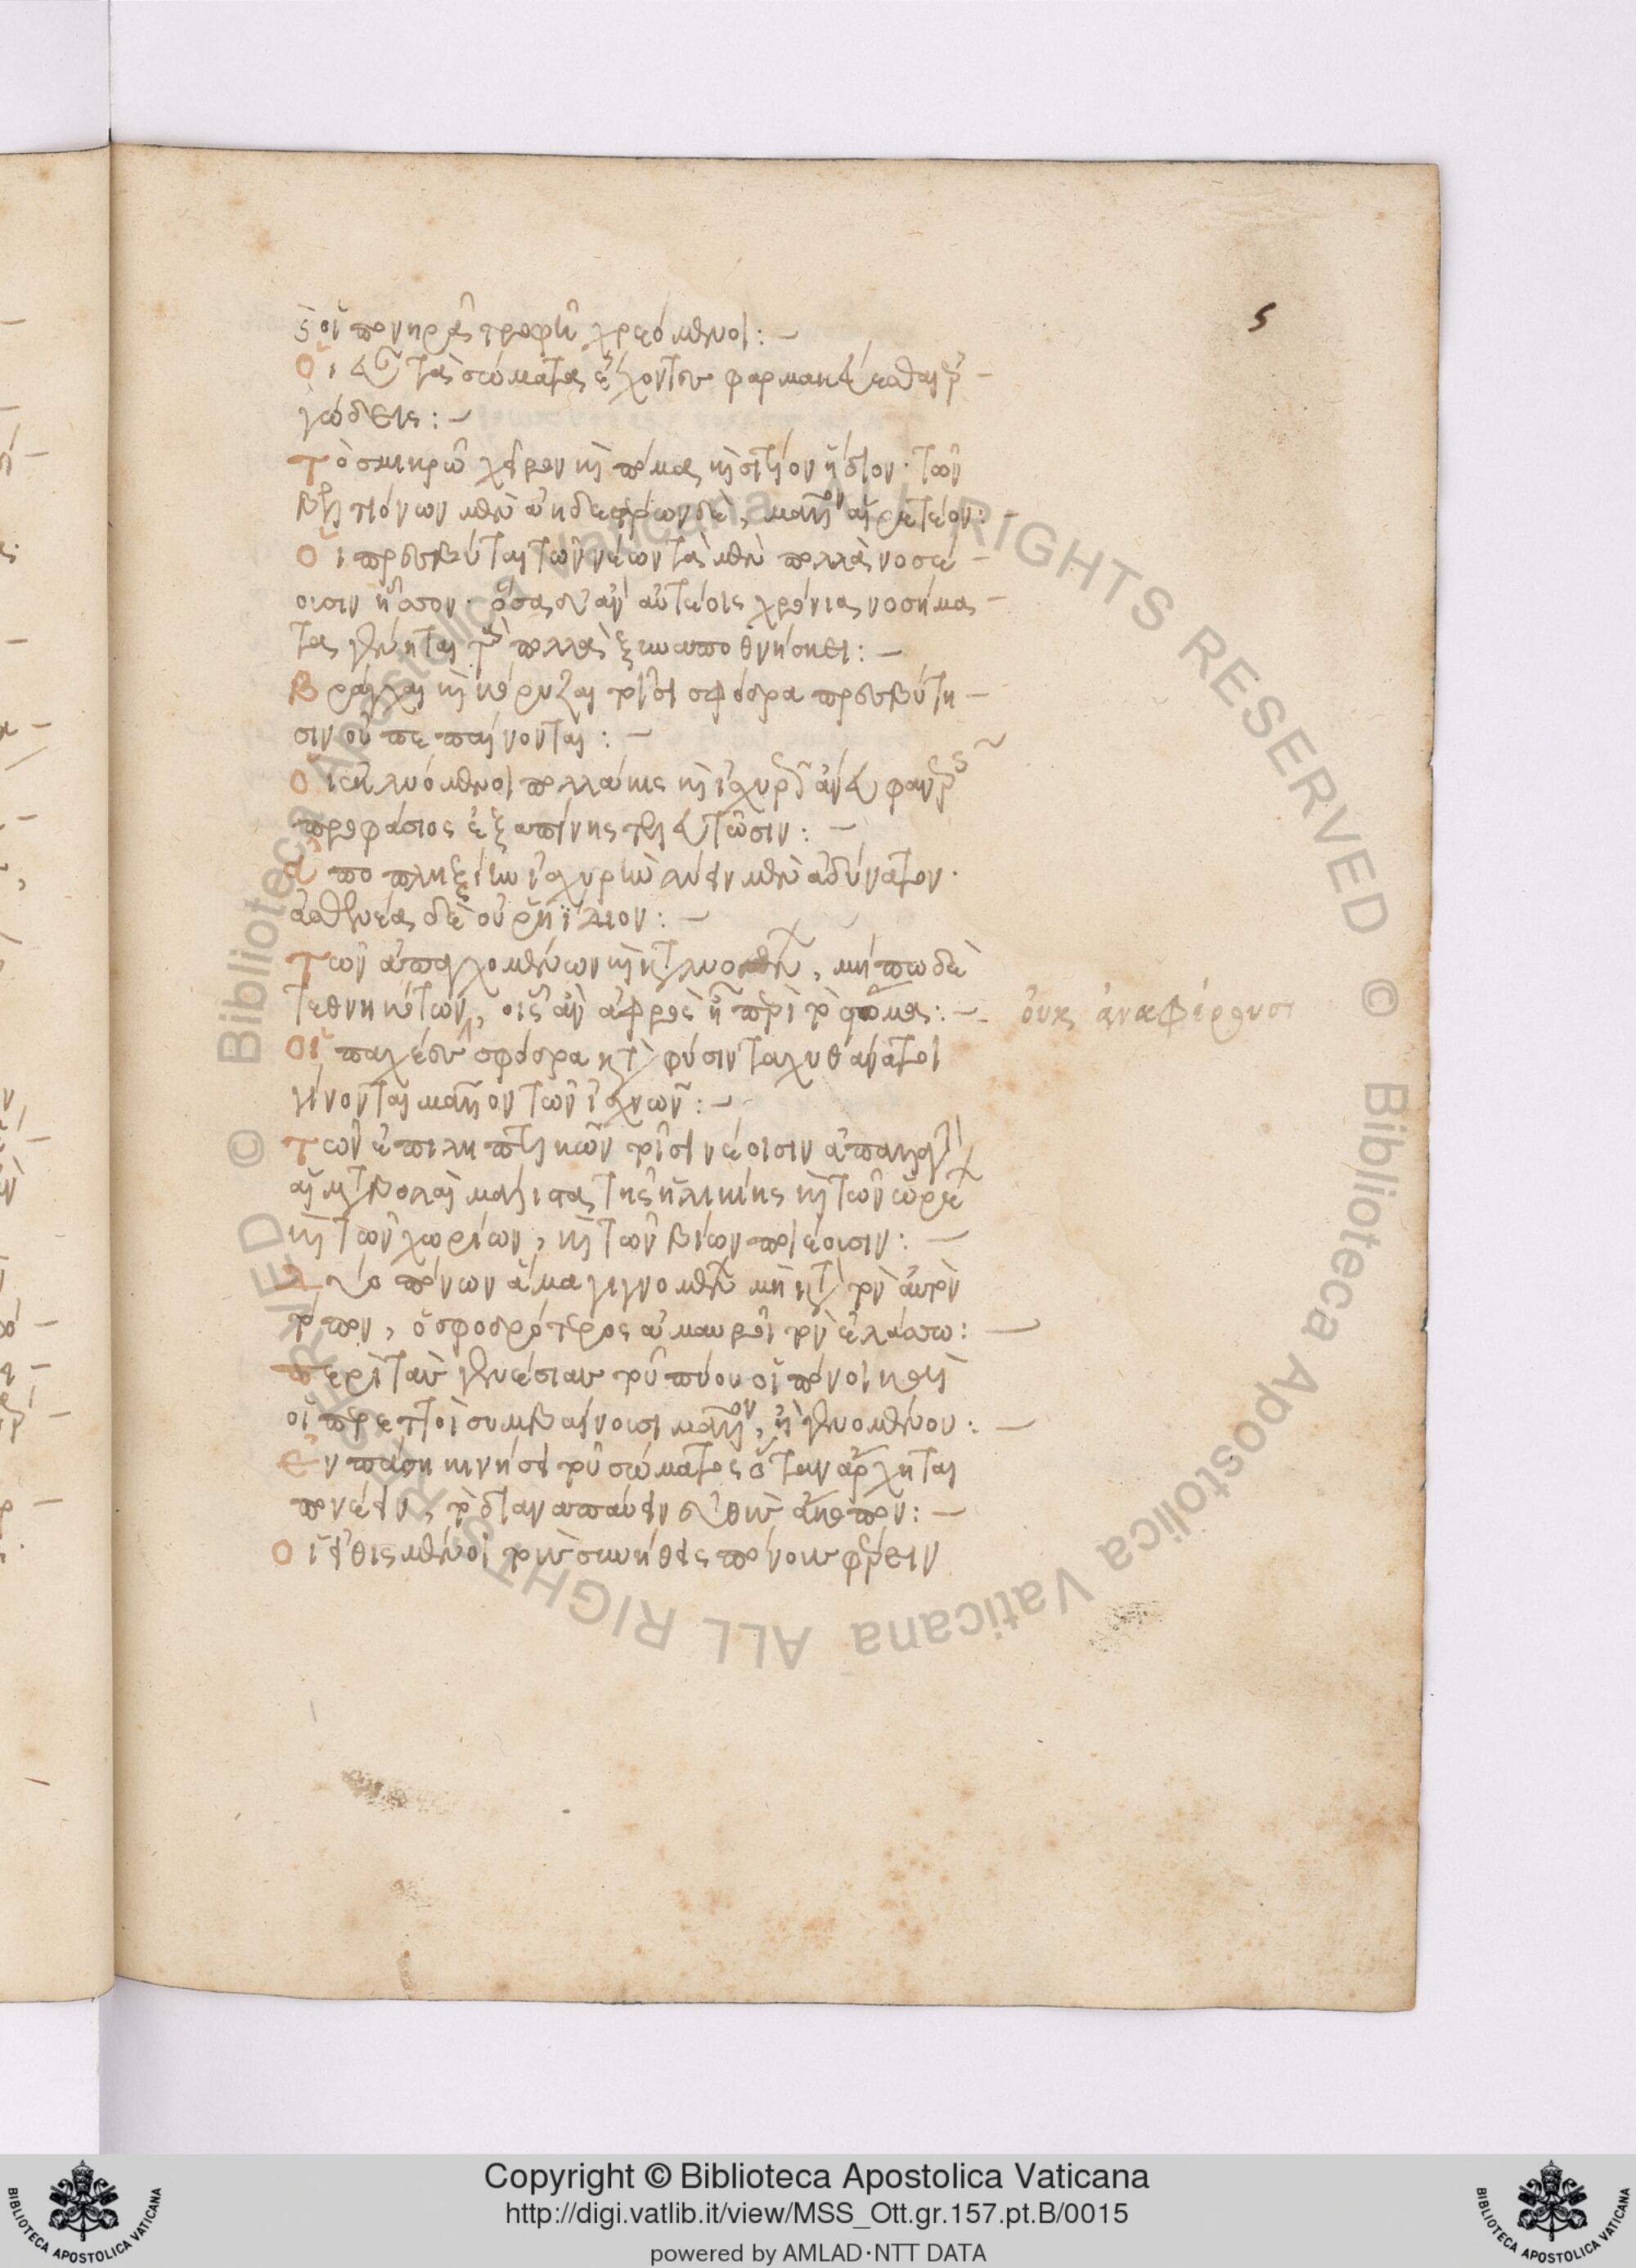 5
καὶ οἱ πονηρῆι τροφῆι χρεόμενοι: –
Οἱ εὖ τὰ σώματα ἔχοντες φαρμακεύεσθαι ἐρ –
γώδεις: –
Τὸ σμικρῶι χεῖρον καὶ πόμα καὶ σιτίον ἥδιον· τῶν
βελτιόνων μὲν ἀηδεστέρων δὲ, μᾶλλον αἱρετέον: –
Οἱ πρεσβύται τῶν νέων τὰ μὲν πολλὰ νοσέ –
ουσιν ἧσσον· ὅσα δ' ἂν αὐτέοις χρόνια νοσήμα –
τα γένηται τὰ πολλὰ ξυναποθνήσκει: –
Βράγχαι καὶ κόρυζαι τοῖσι σφόδρα πρεσβύτη –
σιν οὐ πεπαίνονται: –
Οἱ ἐκλυόμενοι πολλάκις καὶ ἰσχυρῶς ἄνευ φανερῆς
προφάσιος ἐξαπίνης τελευτῶσιν: –
Ἀποπληξίην ἰσχυρὴν λύειν μὲν ἀδύνατον·
ἀσθενέα δὲ οὐ ῥηΐδιον: –
Τῶν ἀπαγχομένων καὶ καταλυομένων, μήπω δὲ
τεθνηκότων, οἷς ἂν ἀφρὸς ἦι περὶ τὸ στόμα: –
οὐκ ἀναφέρουσι
Οἱ παχέες σφόδρα κατὰ φύσιν ταχυθάνατοι
γίνονται μᾶλλον τῶν ἰσχνῶν: –
Τῶν ἐπιληπτικῶν τοῖσι νέοισιν ἀπαλλαγὴν
αἱ μεταβολαὶ μάλιστα τῆς ἡλικίης καὶ τῶν ὡρέων
καὶ τῶν χωρίων, καὶ τῶν βίων ποιέουσιν: –
Δύο πόνων ἅμα γιγνομένων μὴ κατὰ τὸν αὐτὸν
τόπον, ὁ σφοδρότερος ἀμαυροῖ τὸν ἐλάσσω: –
Περὶ τὰς γενέσιας τοῦ πύου οἱ πόνοι καὶ
οἱ πυρετοὶ συμβαίνουσι μᾶλλον, ἢ γενομένου: –
Ἐν πάσῃ κινήσει τοῦ σώματος ὅταν ἄρχηται
πονέειν, τὸ διαναπαύειν εὐθὺς ἄκοπον: –
Οἱ εἰθισμένοι τοὺς συνήθεις πόνους φέρειν
Copyright © Biblioteca Apostolica Vaticana
http://digi.vatlib.it/view/MSS_Ott.gr.157.pt.B/0015
powered by AMLAD·NTT DATA